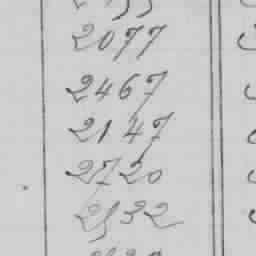 2077
2467
2147
2720
2532